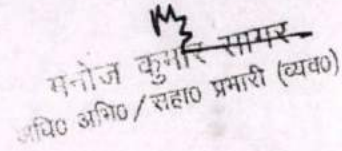 मनोज कुमार सागर
अधि० अभि० / सहा० प्रभारी (व्यव०)